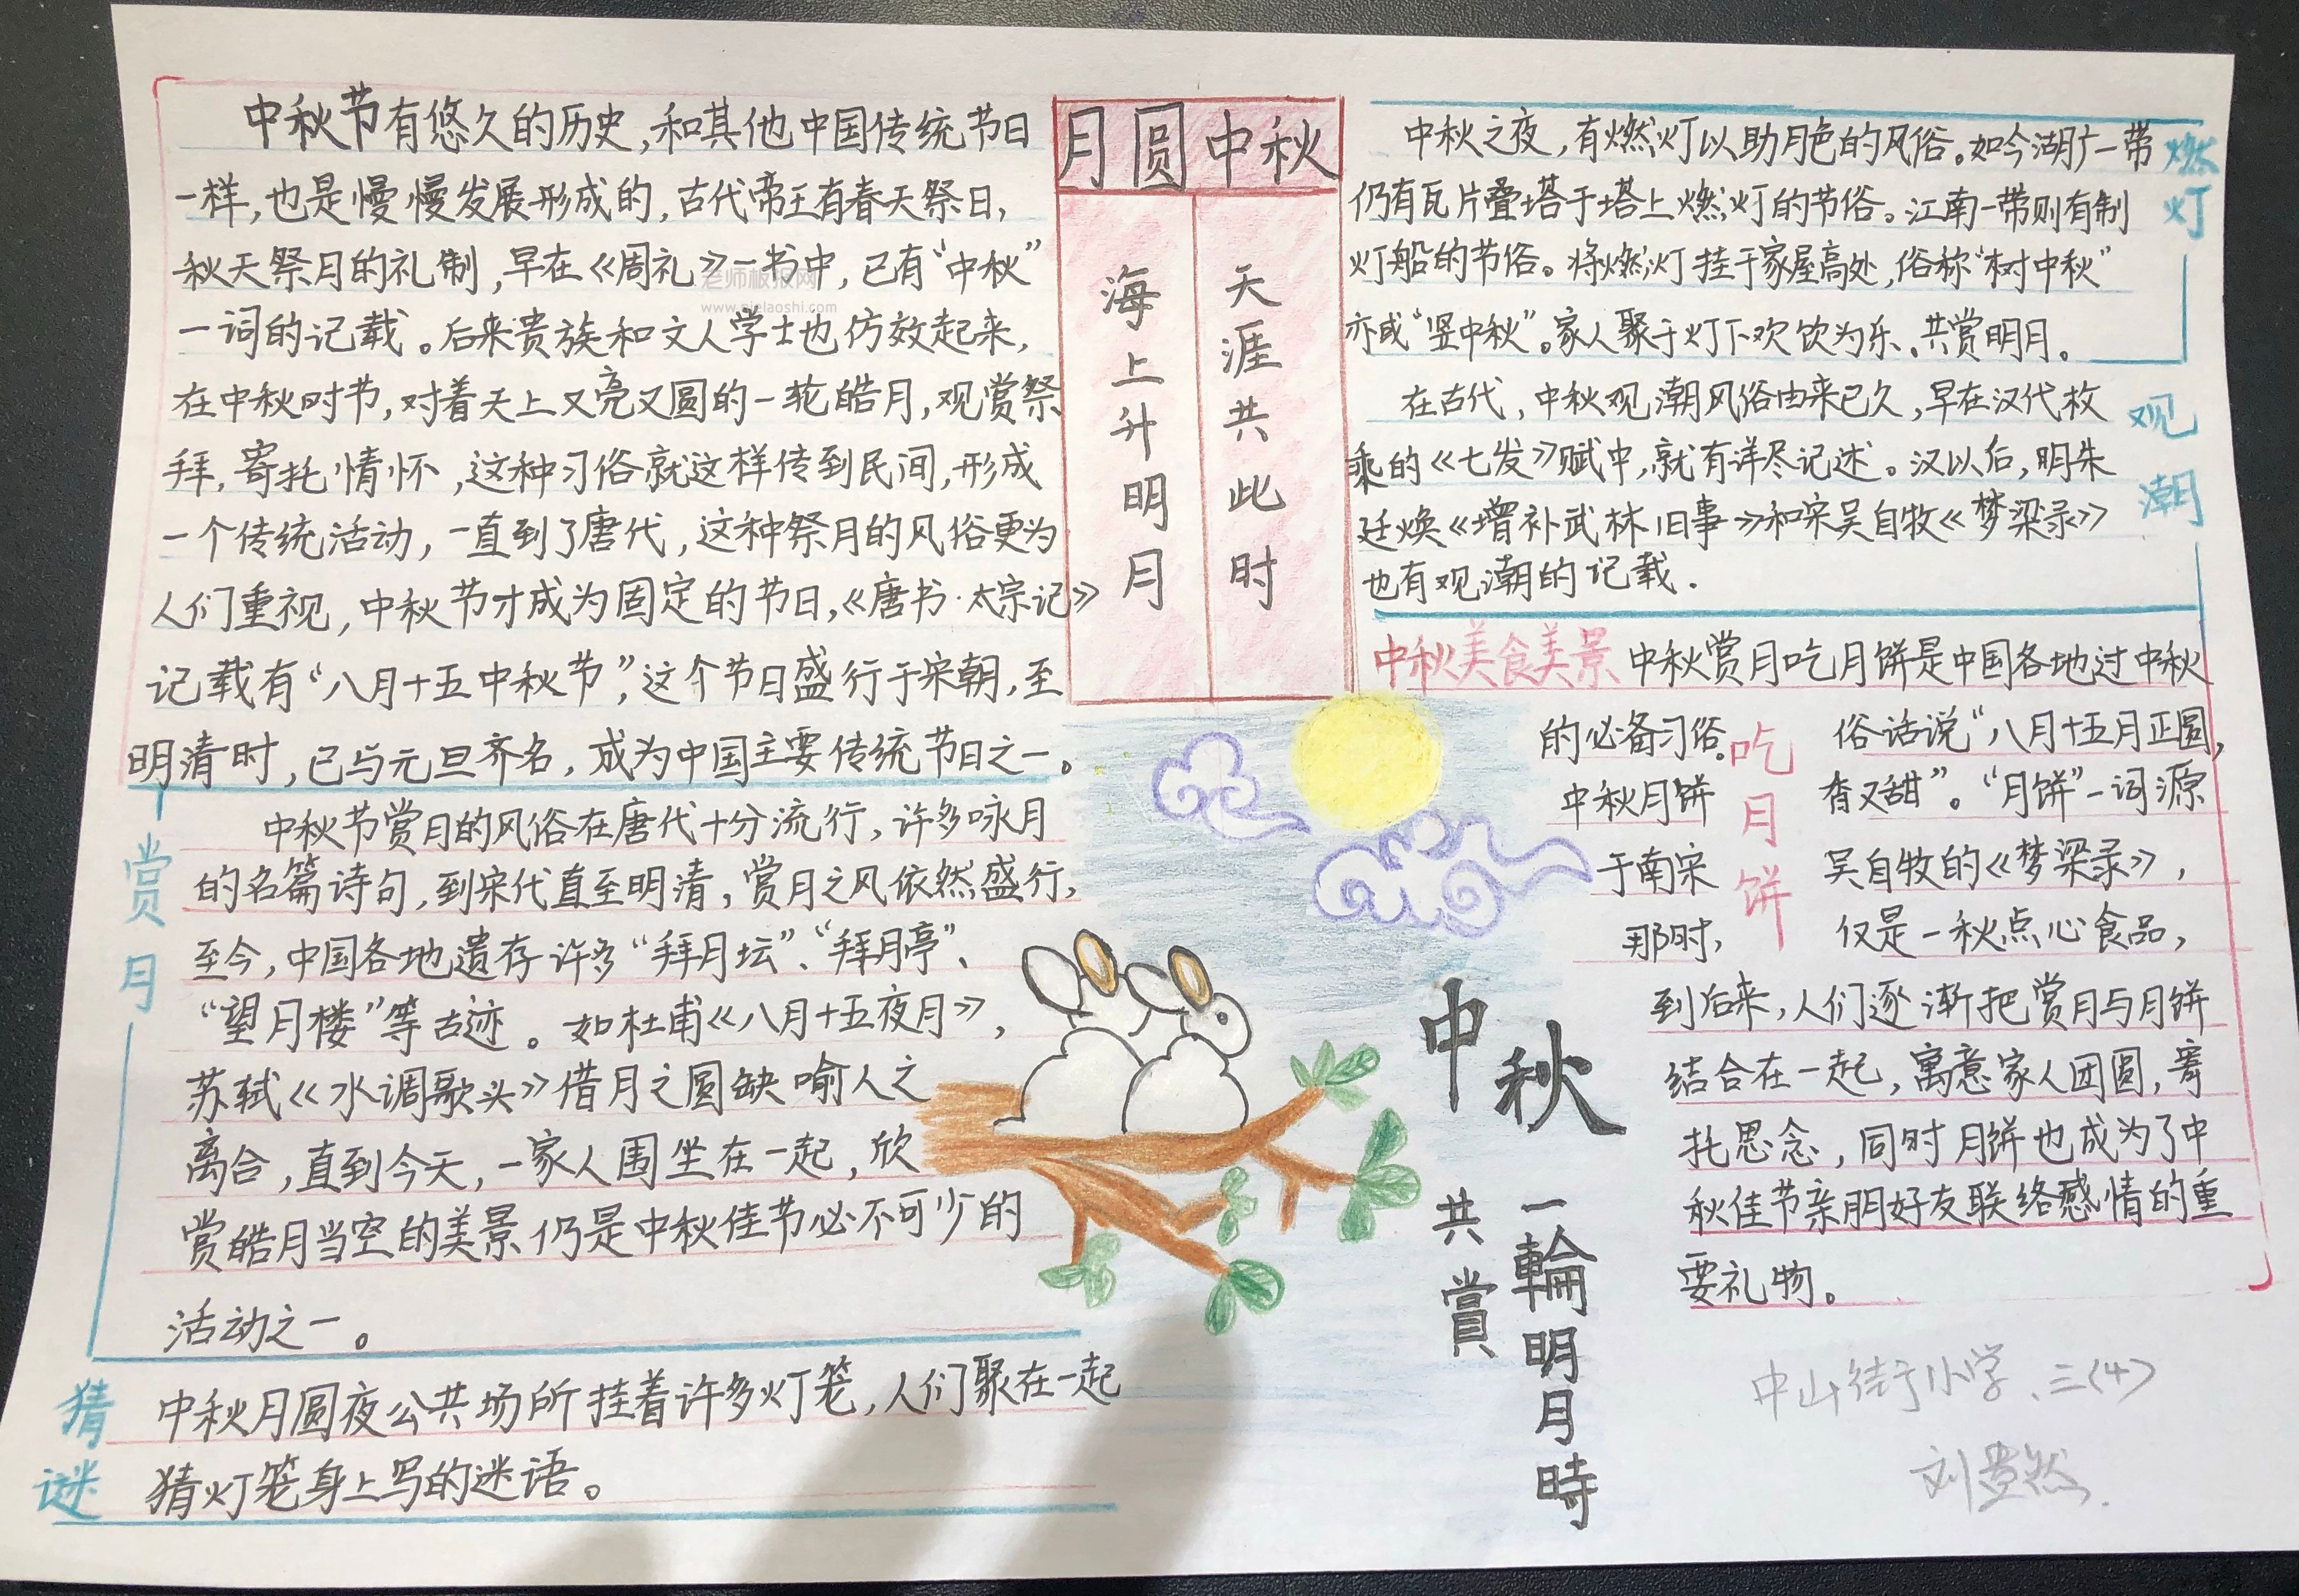 中秋节有悠久的历史,和其他中国传统节日
一样,也是慢慢发展形成的,古代帝王有春天祭日,
秋天祭月的礼制,早在《周礼》一书中,已有“中秋”
一词的记载。后来贵族和文人学士也仿效起来,
在中秋时节,对着天上又亮又圆的一轮皓月,观赏祭
拜,寄托情怀,这种习俗就这样传到民间,形成
一个传统活动,一直到了唐代,这种祭月的风俗更为
人们重视,中秋节才成为固定的节日,《唐书·太宗记》
记载有“八月十五中秋节”,这个节日盛行于宋朝,至
明清时,已与元旦齐名,成为中国主要传统节日之一。
老师板报网
赏月
中秋节赏月的风俗在唐代十分流行,许多咏月
的名篇诗句,到宋代直至明清,赏月之风依然盛行,
至今,中国各地遗存许多“拜月坛”、“拜月亭”、
“望月楼”等古迹。如杜甫《八月十五夜月》,
苏轼《水调歌头》借月之圆缺喻人之
离合,直到今天,一家人围坐在一起,欣
赏皓月当空的美景仍是中秋佳节必不可少的
活动之一。
猜谜
中秋月圆夜公共场所挂着许多灯笼,人们聚在一起
猜灯笼身上写的迷语。
月圆中秋
海上升明月
天涯共此时
燃灯
中秋之夜,有燃灯以助月色的风俗。如今湖广一带
仍有瓦片叠塔于塔上燃灯的节俗。江南一带则有制
灯船的节俗。将燃灯挂于家屋高处,俗称“树中秋”
亦或“竖中秋”。家人聚于灯下欢饮为乐、共赏明月。
观潮
在古代,中秋观潮风俗由来已久,早在汉代枚
乘的《七发》赋中,就有详尽记述。汉以后,明朱
廷焕《增补武林旧事》和宋吴自牧《梦梁录》
也有观潮的记载.
中秋美食美景 中秋赏月吃月饼是中国各地过中秋
吃月饼
的必备习俗。俗话说“八月十五月正圆,
中秋月饼香又甜”。“月饼”一词源
于南宋吴自牧的《梦梁录》,
那时,仅是一秋点心食品,
到后来,人们逐渐把赏月与月饼
结合在一起,寓意家人团圆,寄
托思念,同时月饼也成为了中
秋佳节亲朋好友联络感情的重
要礼物。
中秋
一輪明月時
共賞
中山街小学、三(4)